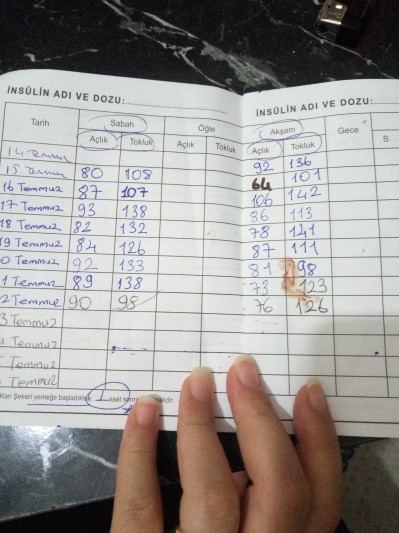 İNSÜLİN ADI VE DOZU:
İNSÜLİN ADI VE DOZU:
Tarih Sabah Öğle Akşam Gece S
Açlık Tokluk Açlık Tokluk Açlık Tokluk
14 Temmuz 92 136
15 Temmuz 80 108 64 101
16 Temmuz 87 107 106 142
17 Temmuz 93 138 86 113
18 Temmuz 82 132 78 141
19 Temmuz 84 126 87 111
0 Temmuz 92 133 81 98
1 Temmuz 89 138 73 123
2 Temmuz 90 98 76 126
3 Temmuz
Temmuz
Temmuz
Temmuz
Kan Şekeri yemeğe başladıktan saat sonra